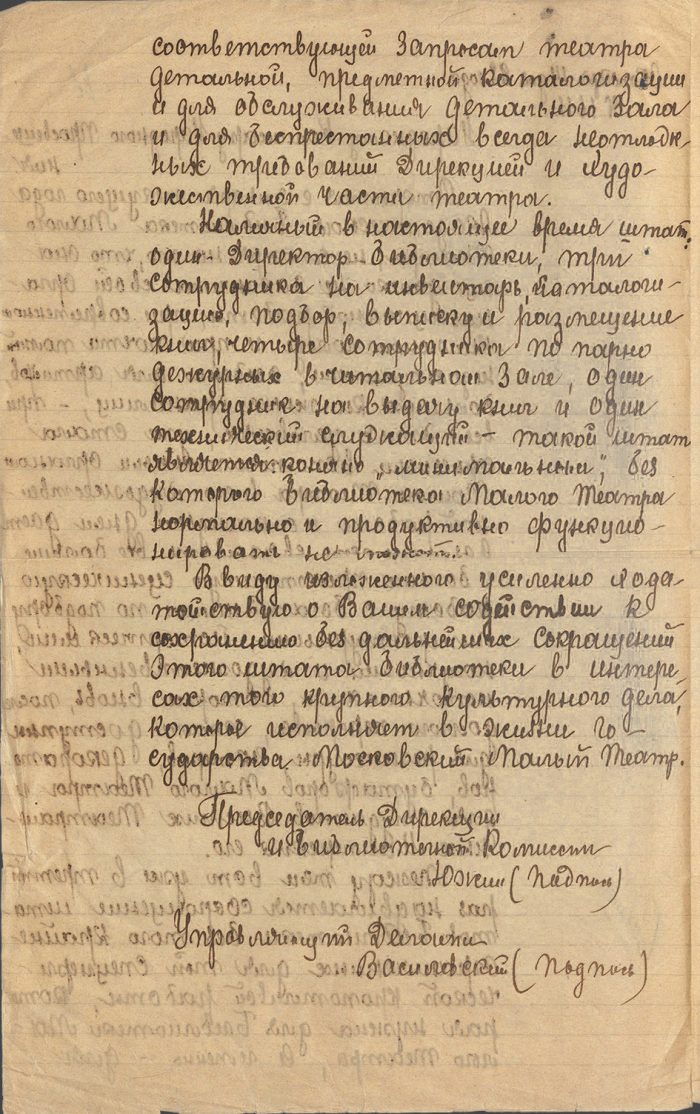 соответствующей запросам театра
детальной, предметной каталогизации
и для обслуживания детального зала
и для беспрестанных всегда неотлож-
ных требований Дирекцией и худо-
жественной части театра.
Наличный в настоящее время штат:
один Директор Библиотеки, три
сотрудника на инвентарь, каталоги-
зацию, подбор, выписку и размещение
книг, четыре сотрудника по парно
дежурных в читальном зале, один
сотрудник на выдачу книг и один
технический служащий – такой штат
является конечно „минимальным", без
которого Библиотека Малого Театра
нормально и продуктивно функцио-
нировать не может.
Ввиду изложенного усиленно хода
тайствую о Вашем содействии к
сохранению без дальнейших сокращений
этого штата Библиотеки в интере-
сах того крупного культурного дела,
которое исполняет в жизни го-
сударства Московский Малый Театр.
Председатель Дирекции
и Библиотечной Комиссии
Южин (подпись)
Управляющий Делами
Василевский (подпись)